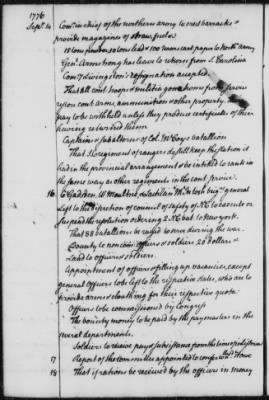 1776
Sept. 14 Comr in chief of the northern army to erect barracks &
provide magazines of straw fuel &
10 tons powder 20 tons lead & 100 reams cart. paper to North. army
Genl. Armstrong has leave to return from S. Carolina
resignation accepted.
That all cont. troops & militia gone home from service
restore cont. arms, ammunition & other property
pay to be withheld unless they produce certificates of their
having returned them
Captains & subalterns of Col. McCoys battallion
That regiment of rangers shall keep the station it
had in the provincial arrangement & be intitled to rank in
the same way as other regiments in the cont. service
16. Gadsden & Moultrie, McIntosh brigr. generals
Left to the discretion of council of safety of N.C. to execute or
suspend the resolution ordering 2 N.C. bat. to New York.
That 88 battallions be raised to serve during the war.
Bounty to non com. officers & soldiers 20 dollars &
Land to officers & soldiers
Appointment of officers & filling up vacancies, except
general officers to be left to the respective states, who are to
provide arms & cloathing for their respective quota.
Officers to be commissioned by Congress
The bounty money to be paid by the paymaster in the
several departments.
Soldiers to receive pay & subsistence from the time of inlistment
17 Report of the committee appointed to confer with Ld. Howe
18 That if rations be received by the officers in money